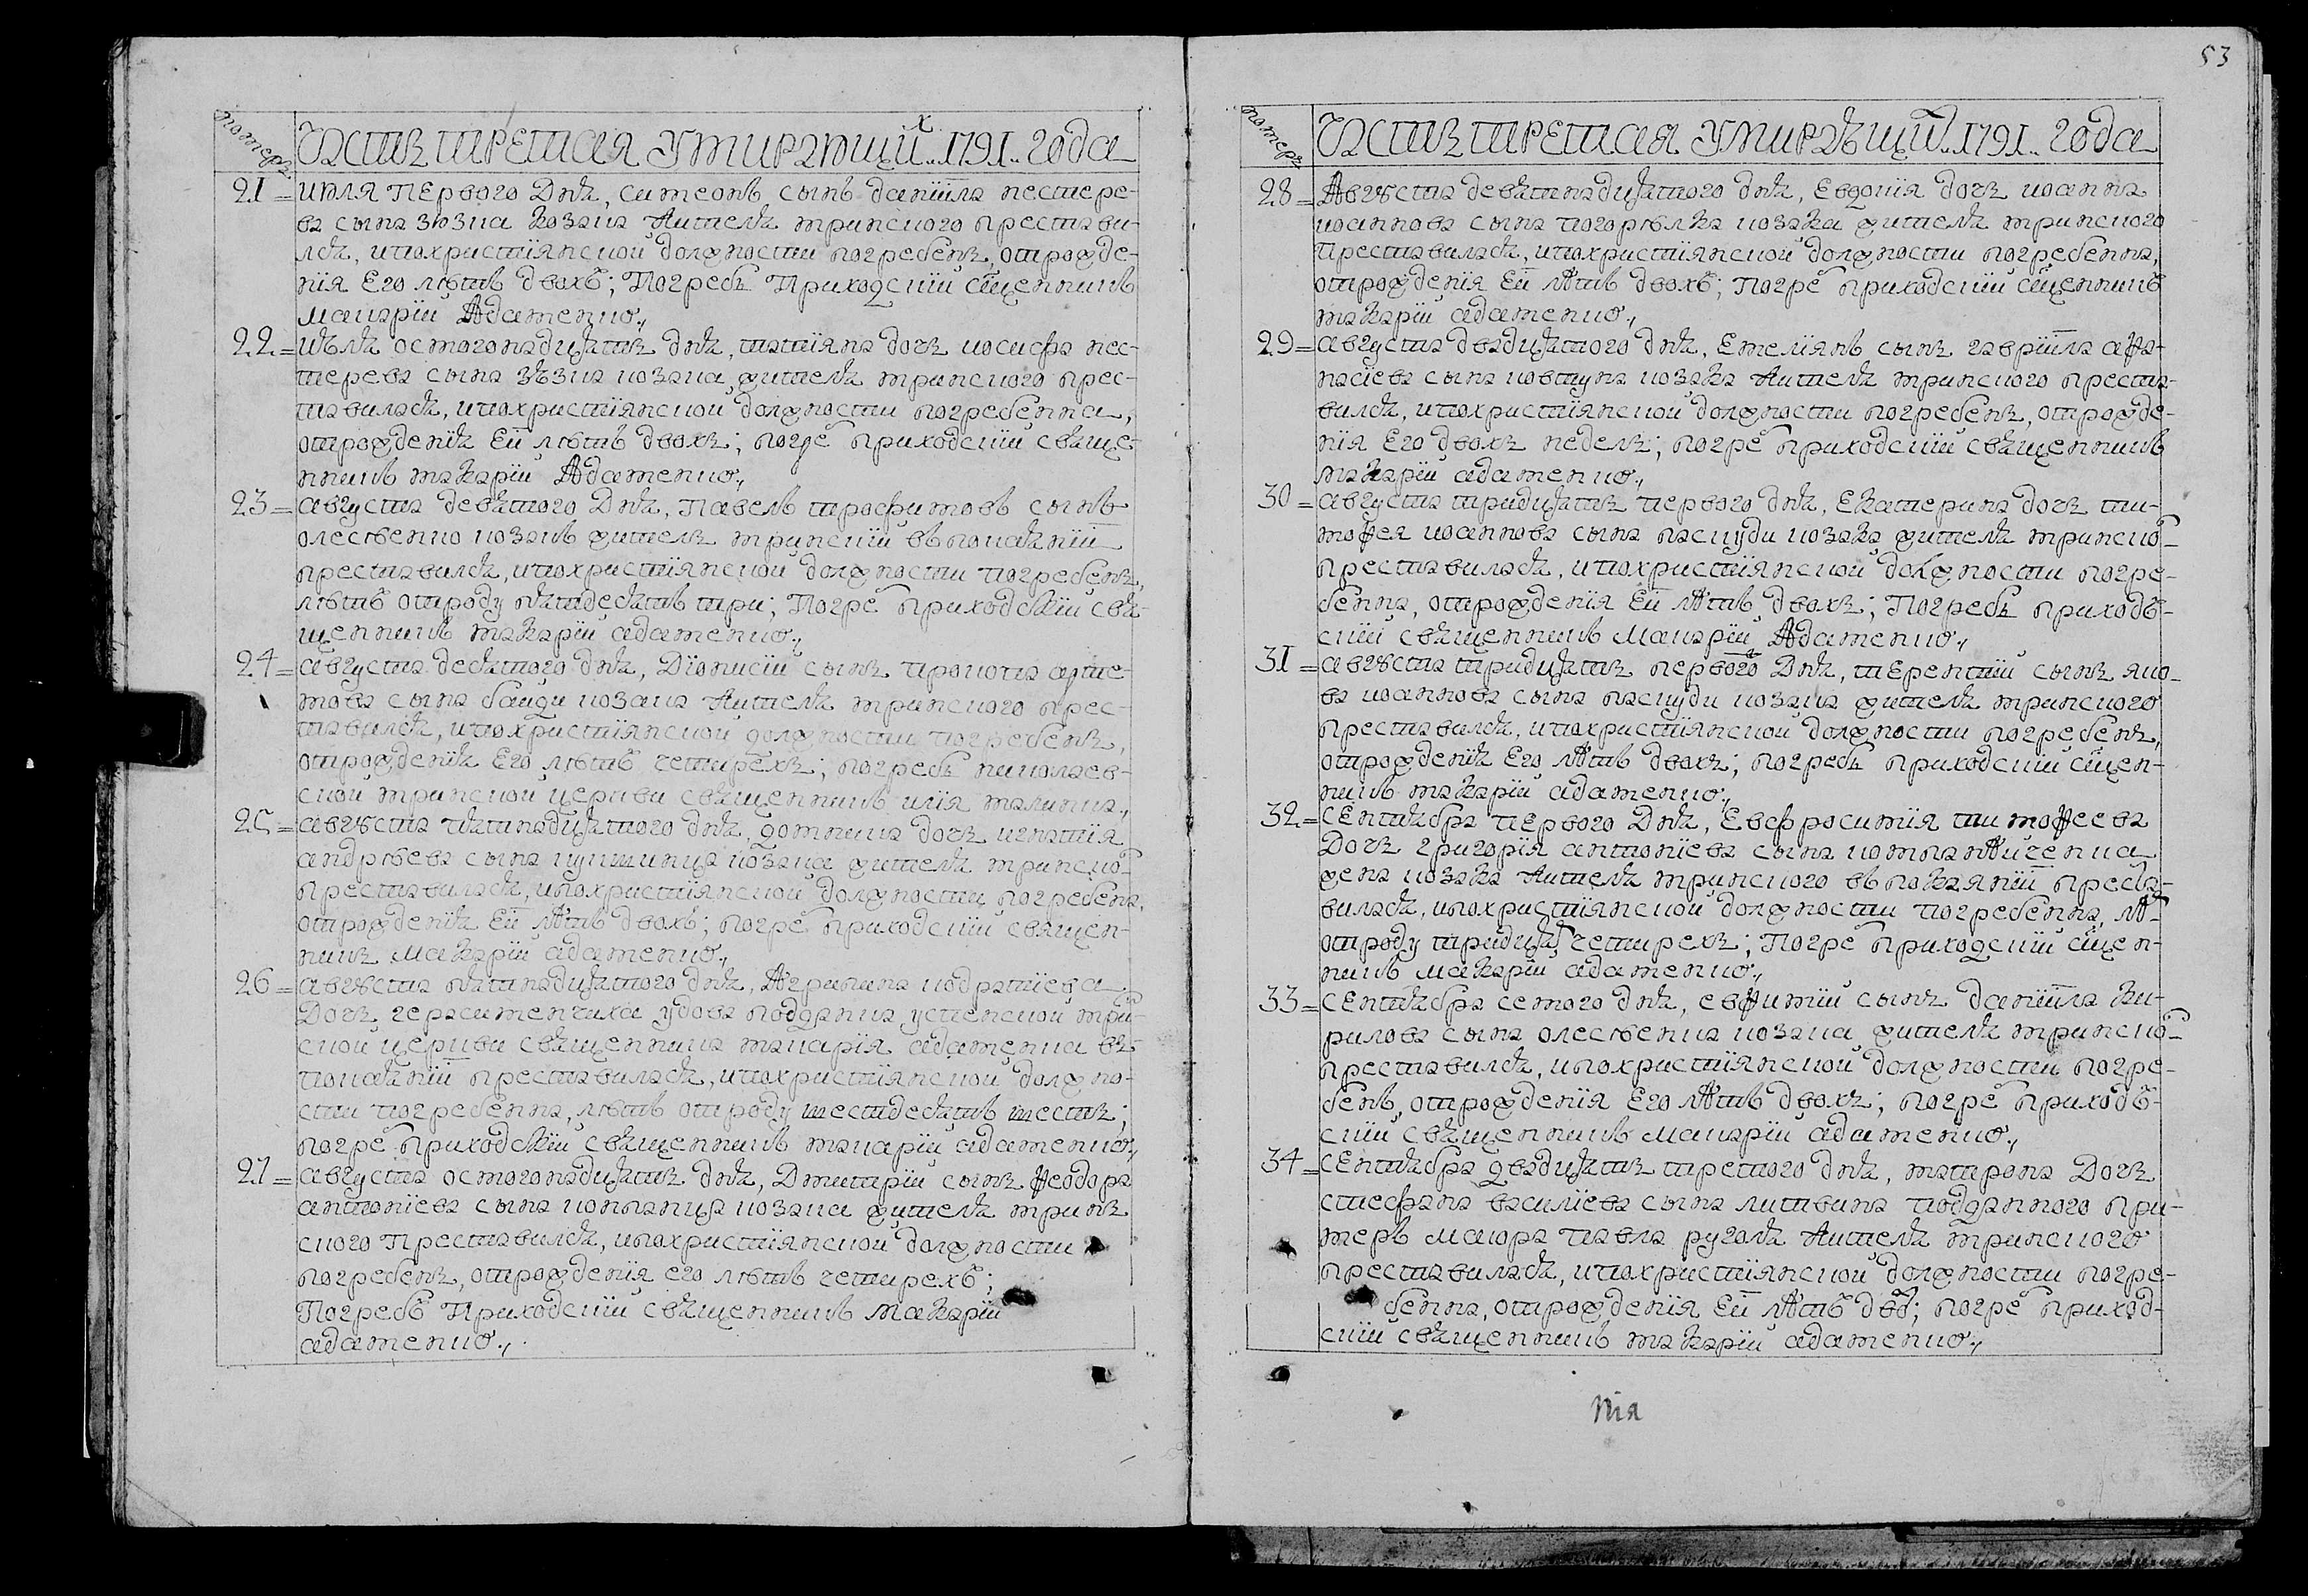 номеръ
Часть третая умирающихъ 1791 года
21 = июля первого дня, Симеонъ сынъ даніила нестере-
ва сына зюзка козака жителя мринского престави-
лся, и по христіянской должности погребенъ, отрожде-
нія Его лѣтъ двохъ; Погребъ Приходскій сщенникъ
Макарій Адаменко.,
22 = июля осмогонадцять дня, татіяна дочь иосифа нес-
терева сына зюзка козака, жителя мринского прес-
тавилася, и по христіянской должности погребенна,
отрожденія Еи лѣтъ двохъ; погре приходскій свяще-
нникъ макарій Адаменко.,
23 = августа девятого Дня, Павелъ трофимовъ сынъ
олесѣенко козакъ житель мринскій въ покаяніи
преставился, и по христіянской должности погребенъ,
лѣтъ отроду пятдесятъ три; Погре приходскій свя-
щенникъ макарій адаменко.,
24 = августа десятого дня, Діонисій сынъ прокопа арте-
мова сына байди козака жителя мринского прес-
тавился, и по христіянской должности погребенъ,
отрожденія Его лѣтъ четирехъ; погребъ николаев-
ской мринской церкви священникъ илія малинка.,
25 = августа пятнадцятого дня, домникиа дочь игнатія
андрѣева сына кушинца козака жителя мринско
преставилася, и по христіянской должности погребена,
отрожденія Еи лѣтъ двохъ; погре приходскій священ-
никъ макарій адаменко.,
26 = августа пятнадцятого дня, Агрипина кодратіева
Дочь герасименчиха удова поддання успенской мри-
ской церкви священника макарія адаменка въ
покаяніи преставилася, и по христіянской должно-
сти погребенна, лѣтъ отроду шестдесятъ шесть;
погре приходскій священникъ макарій адаменко.,
27 = августа осмогонадцять дня, Дмитрій сынъ феодора
антоніева сына копанця козака жителя мринъ
ского Преставился, и по христіянской должности
погребенъ, отрожденія его лѣтъ четирехъ;
Погребъ Приходскій священникъ макарій
адаменко.,
53
номеръ
Часть третая умирающихъ 1791 года
28 = Августа девятнадцятого дня, Евдокія дочь иоанна
иоаннова сына погорѣлка козака жителя мринского
Преставилася, и по христіянской должности погребенна,
отрожденія Еи лѣтъ двохъ; погре приходскій сщенникъ
макарій адаменко.,
29 = августа двадцятого дня, Емеліянъ сынъ гавріила афа-
насіева сына ковтуна козака жителя мринского преста-
вился, и по христіянской должности погребенъ, отрожде-
нія Его двохъ недель; погре приходскій священникъ
макарій адаменко.,
30 = августа тридцять первого дня, Екатерина дочь ти-
мофея иоаннова сына паскуди козака жителя мринско
преставилася, и по христіянской должности погре-
бенна, отрожденія Еи лѣтъ двохъ; Погребъ приходъ-
скій священникъ Макарій Адаменко.,
31 = августа тридцять первого Дня, терентій сынъ яко-
ва иоаннова сына паскуди козака жителя мринского
преставился, и по христіянской должности погребенъ,
отрожденія Его лѣтъ двохъ; погребъ приходскій сщен-
никъ макарій адаменко.,
32 = сентября первого Дня, Евфросимія тимофеева
Дочь григорія антоніева сына
жена козака жителя мринского въ покаяніи преста-
вилася, и по христіянской должности погребенна, лѣ
отроду тридцят четирехъ; Погре приходскій сщен-
никъ макарій адаменко.,
33 = сентября семого дня, евфимій сынъ даніила ки-
рилова сына олесѣенка козака жителя мринско
преставился, и по христіянской должности погре-
бенъ, отрожденія Его лѣтъ двохъ; погре приходъ-
скій священникъ Макарій адаменко.,
34 = сентября двадцять третого дня, матрона Дочь
стефана василіева сына литвина подданного при-
меръ маиора павла ругаля жителя мринского
преставилася, и по христіянской должности погре-
бенна, отрожденія Еи лѣтъ дво; погре приход-
скій священникъ макарій адаменко.,
нія